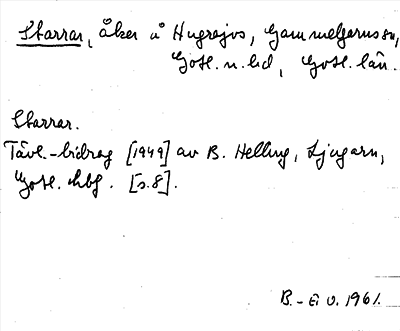 Starrar, åker å Hugrajvs, Gammelgarns sn,
Gotl. n. hd, Gotl. län.
Starrar.
Tävl.-bidrag [1949] av B. Helling, Ljugarn,
Gotl. [s. 8].
B.-E. O. 1961.